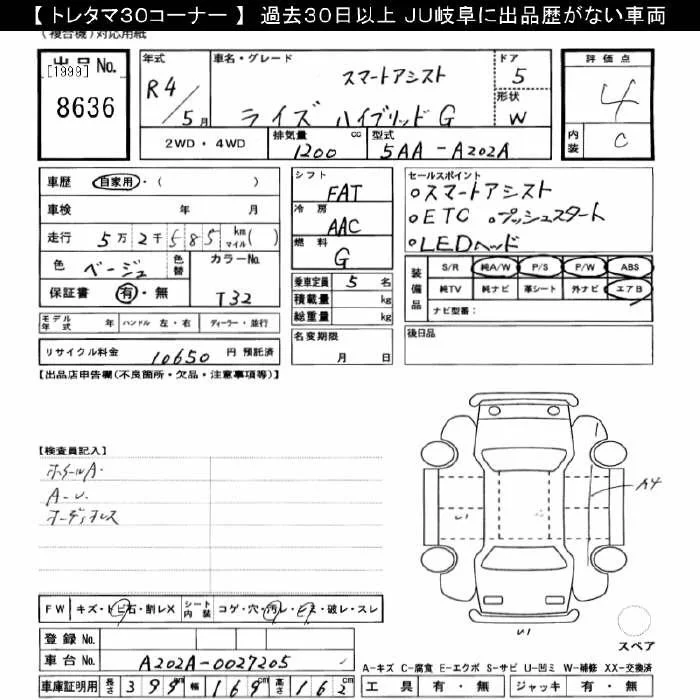 【 トレタマ30コーナー 】 過去30日以上 JU岐阜に出品歴がない車両
(複合機)対応用紙
出品No. [1999] 8636
年式 R4/5月
車名・グレード スマートアシスト
ライズ ハイブリッド G
ドア 5
形状 W
評価点 4
内装 C
2WD・4WD 排気量 1200 cc 型式 5AA-A202A
車歴 自家用・( )
車検 年 月
走行 5万2千585 km マイル( )
色 ベージュ 色替 カラーNo. T32
保証書 有・無
モデル年式 年 ハンドル 左・右 ディーラー・並行
リサイクル料金 10650 円 預託済
シフト FAT
冷房 AAC
燃料 G
乗車定員 5 名
積載量 kg
総重量 kg
名変期限 月 日
セールスポイント
○スマートアシスト
○ETC ○プッシュスタート
○LEDヘッド
装備品 S/R 純A/W P/S P/W ABS
純TV 純ナビ 革シート 外ナビ エアB
ナビ型番:
後日品
【出品店申告欄(不良箇所・欠品・注意事項等)】
【検査員記入】
ホイールA.
A-U.
A4
U1
U1
FW キズ・トビ石・割レX シート内装 コゲ・穴・汚レ・ヒス・破レ・スレ
登録 No.
車台 No. A202A-0027205
車庫証明用 長さ 399 cm 幅 169 cm 高さ 162 cm
スペア
A-キズ C-腐食 E-エクボ S-サビ U-凹ミ W-補修 XX-交換済
工具 有・無 ジャッキ 有・無